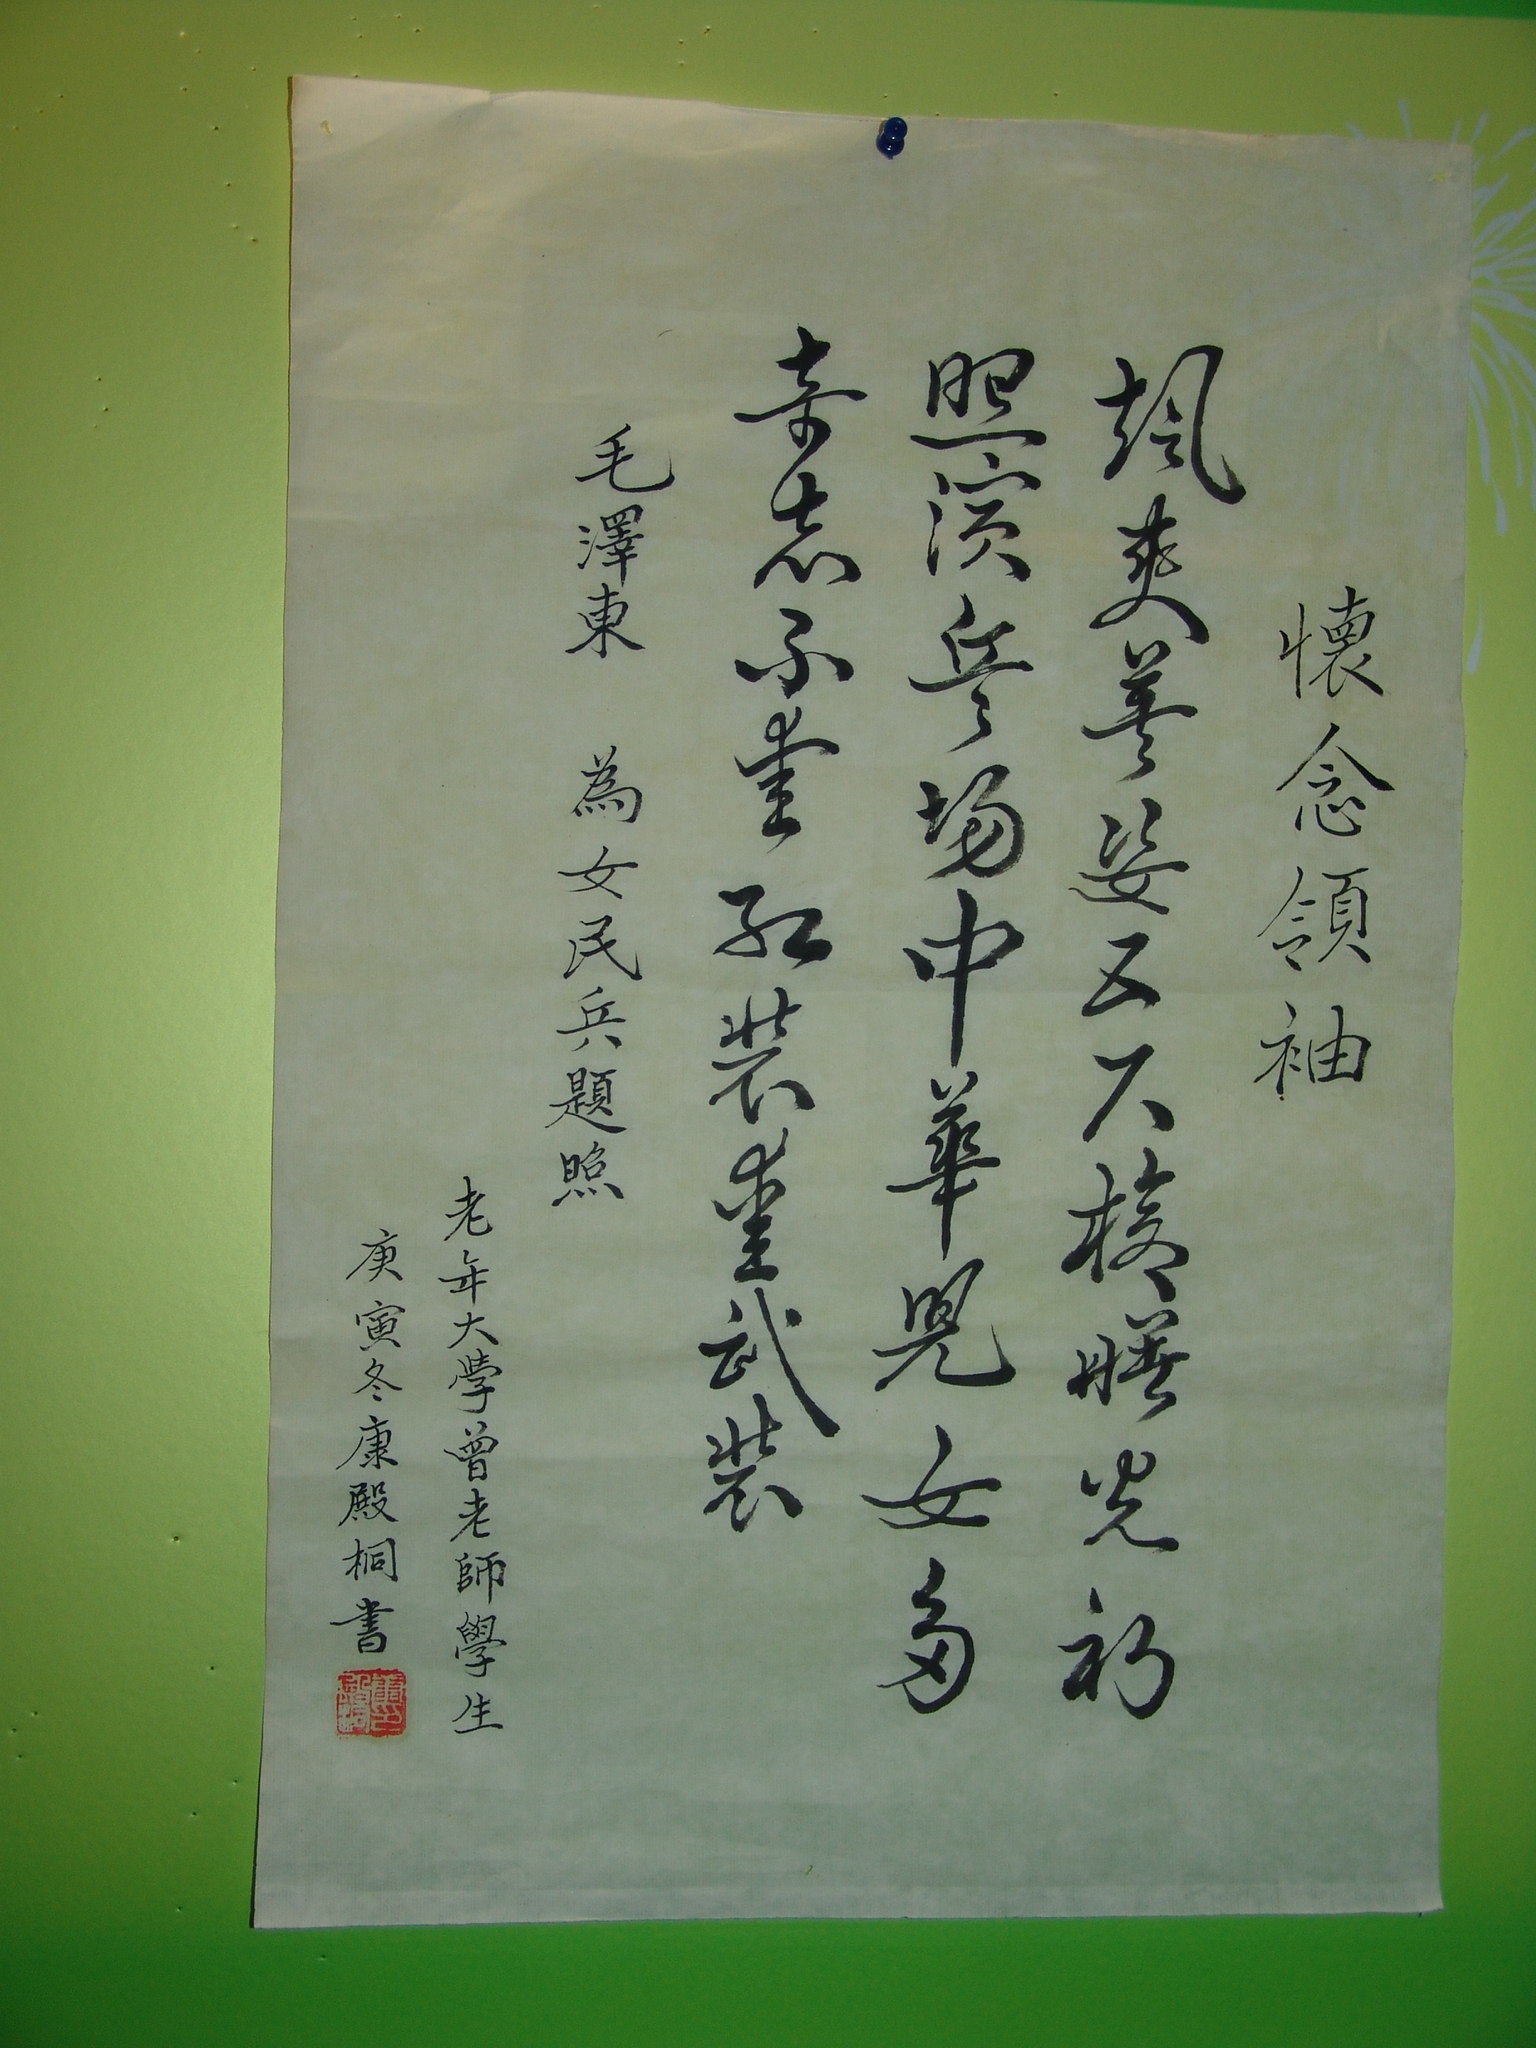 懷念領袖
颯爽英姿五尺槍曙光初
照演兵場中華兒女多
奇志不愛紅裝愛武裝
毛澤東 為女民兵題照
老年大學曾老師學生
庚寅冬康殿桐書